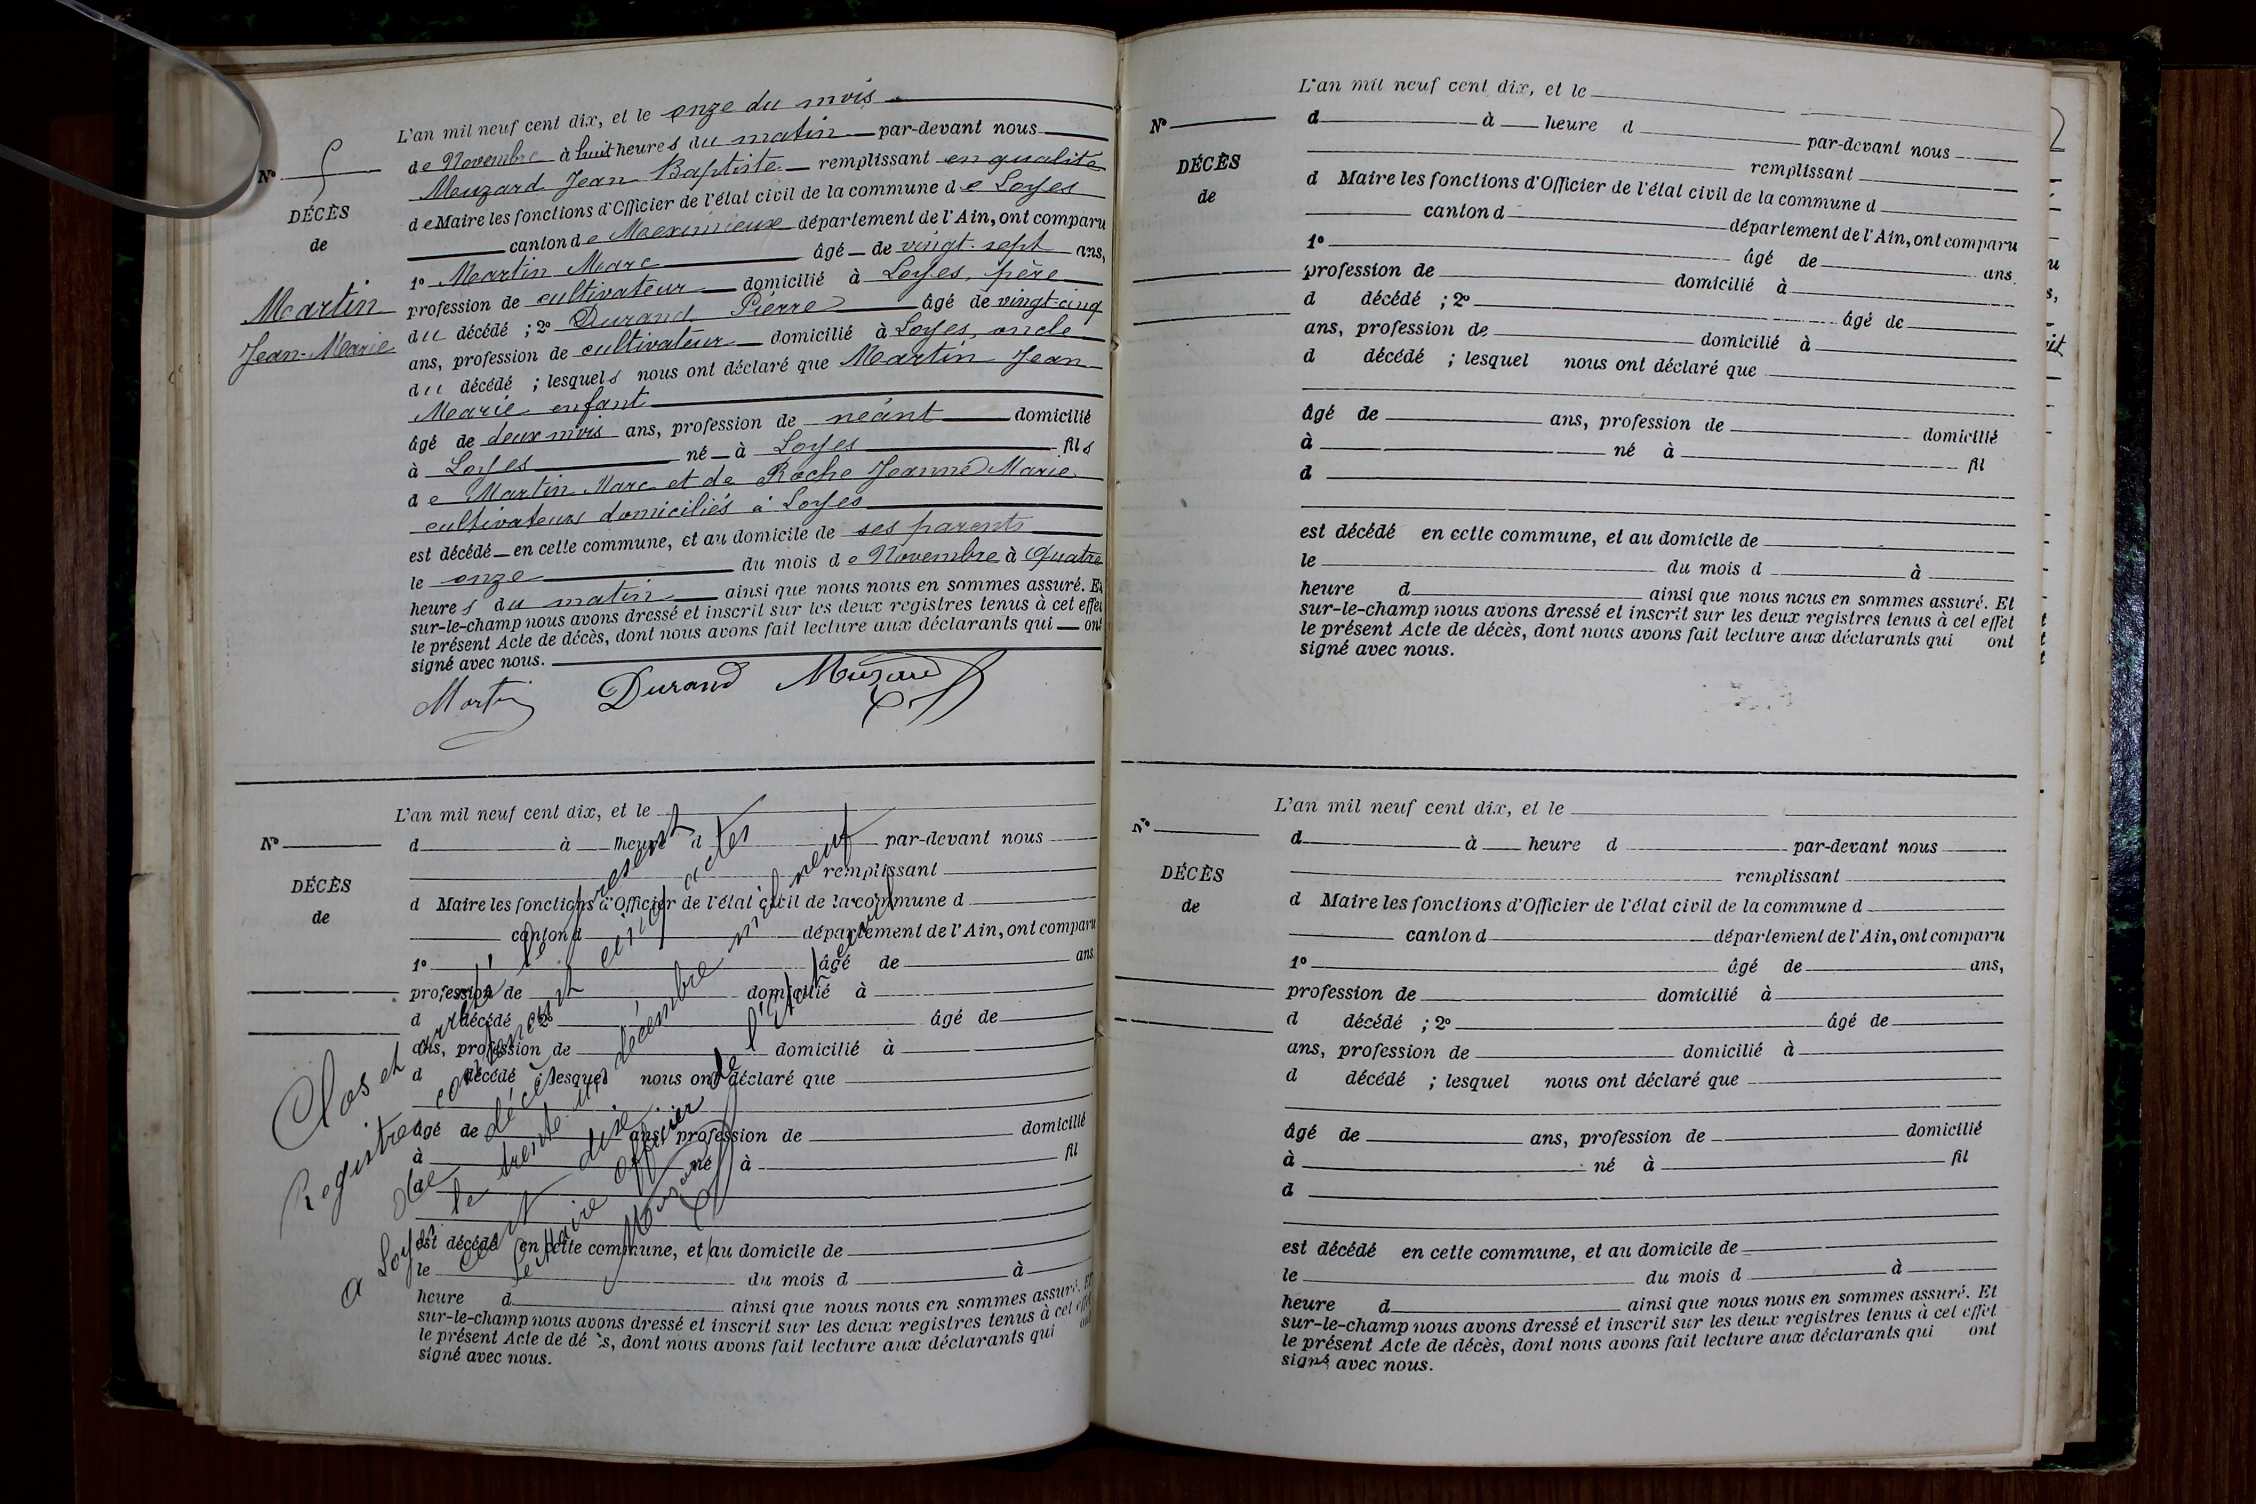 L'an mil neuf cent dix, et le onze du mois
de Novembre à huit heures du matin par-devant nous
Muzard Jean Baptiste remplissant en qualité
de Maire les fonctions d'Officier de l'état civil de la commune de Loyes
canton de Meximieux département de l'Ain, ont comparu
1º Martin Marc âgé de vingt-sept ans,
profession de cultivateur domicilié à Loyes, père
du décédé ; 2º Durand Pierre âgé de vingt-cinq
ans, profession de cultivateur domicilié à Loyes, oncle
du décédé ; lesquels nous ont déclaré que Martin Jean
Marie enfant
âgé de deux mois ans, profession de néant domicilié
à Loyes né à Loyes fils
de Martin Marc et de Roche Jeanne Marie
cultivateurs domiciliés à Loyes
est décédé en cette commune, et au domicile de ses parents
le onze du mois de Novembre à quatre
heures du matin ainsi que nous nous en sommes assuré. Et
sur-le-champ nous avons dressé et inscrit sur les deux registres tenus à cet effet
le présent Acte de décès, dont nous avons fait lecture aux déclarants qui ont
signé avec nous.
Martin Durand Muzard
Nº 5
DÉCÈS
de
Martin
Jean-Marie
L'an mil neuf cent dix, et le
d à heure d par-devant nous
remplissant
d Maire les fonctions d'Officier de l'état civil de la commune d
canton d département de l'Ain, ont comparu
1º âgé de ans
profession de domicilié à
d décédé ; 2º âgé de
ans, profession de domicilié à
d décédé ; lesquel nous ont déclaré que
âgé de ans, profession de domicilié
à né à fil
d
est décédé en cette commune, et au domicile de
le du mois d à
heure d ainsi que nous nous en sommes assuré. Et
sur-le-champ nous avons dressé et inscrit sur les deux registres tenus à cet effet
le présent Acte de décès, dont nous avons fait lecture aux déclarants qui ont
signé avec nous.
Nº
DÉCÈS
de
Clos et arrêté le présent
Registre contenant cinq actes
de décès
a Loyes le trente-un décembre mil neuf
cent dix
Le Maire officier de l'Etat civil
Muzard
L'an mil neuf cent dix, et le
d à heure d par-devant nous
remplissant
d Maire les fonctions d'Officier de l'état civil de la commune d
canton d département de l'Ain, ont comparu
1º âgé de ans
profession de domicilié à
d décédé ; 2º âgé de
ans, profession de domicilié à
d décédé ; lesquel nous ont déclaré que
âgé de ans, profession de domicilié
à né à fil
d
est décédé en cette commune, et au domicile de
le du mois d à
heure d ainsi que nous nous en sommes assuré. Et
sur-le-champ nous avons dressé et inscrit sur les deux registres tenus à cet effet
le présent Acte de décès, dont nous avons fait lecture aux déclarants qui ont
signé avec nous.
Nº
DÉCÈS
de
L'an mil neuf cent dix, et le
d à heure d par-devant nous
remplissant
d Maire les fonctions d'Officier de l'état civil de la commune d
canton d département de l'Ain, ont comparu
1º âgé de ans,
profession de domicilié à
d décédé ; 2º âgé de
ans, profession de domicilié à
d décédé ; lesquel nous ont déclaré que
âgé de ans, profession de domicilié
à né à fil
d
est décédé en cette commune, et au domicile de
le du mois d à
heure d ainsi que nous nous en sommes assuré. Et
sur-le-champ nous avons dressé et inscrit sur les deux registres tenus à cet effet
le présent Acte de décès, dont nous avons fait lecture aux déclarants qui ont
signé avec nous.
Nº
DÉCÈS
de